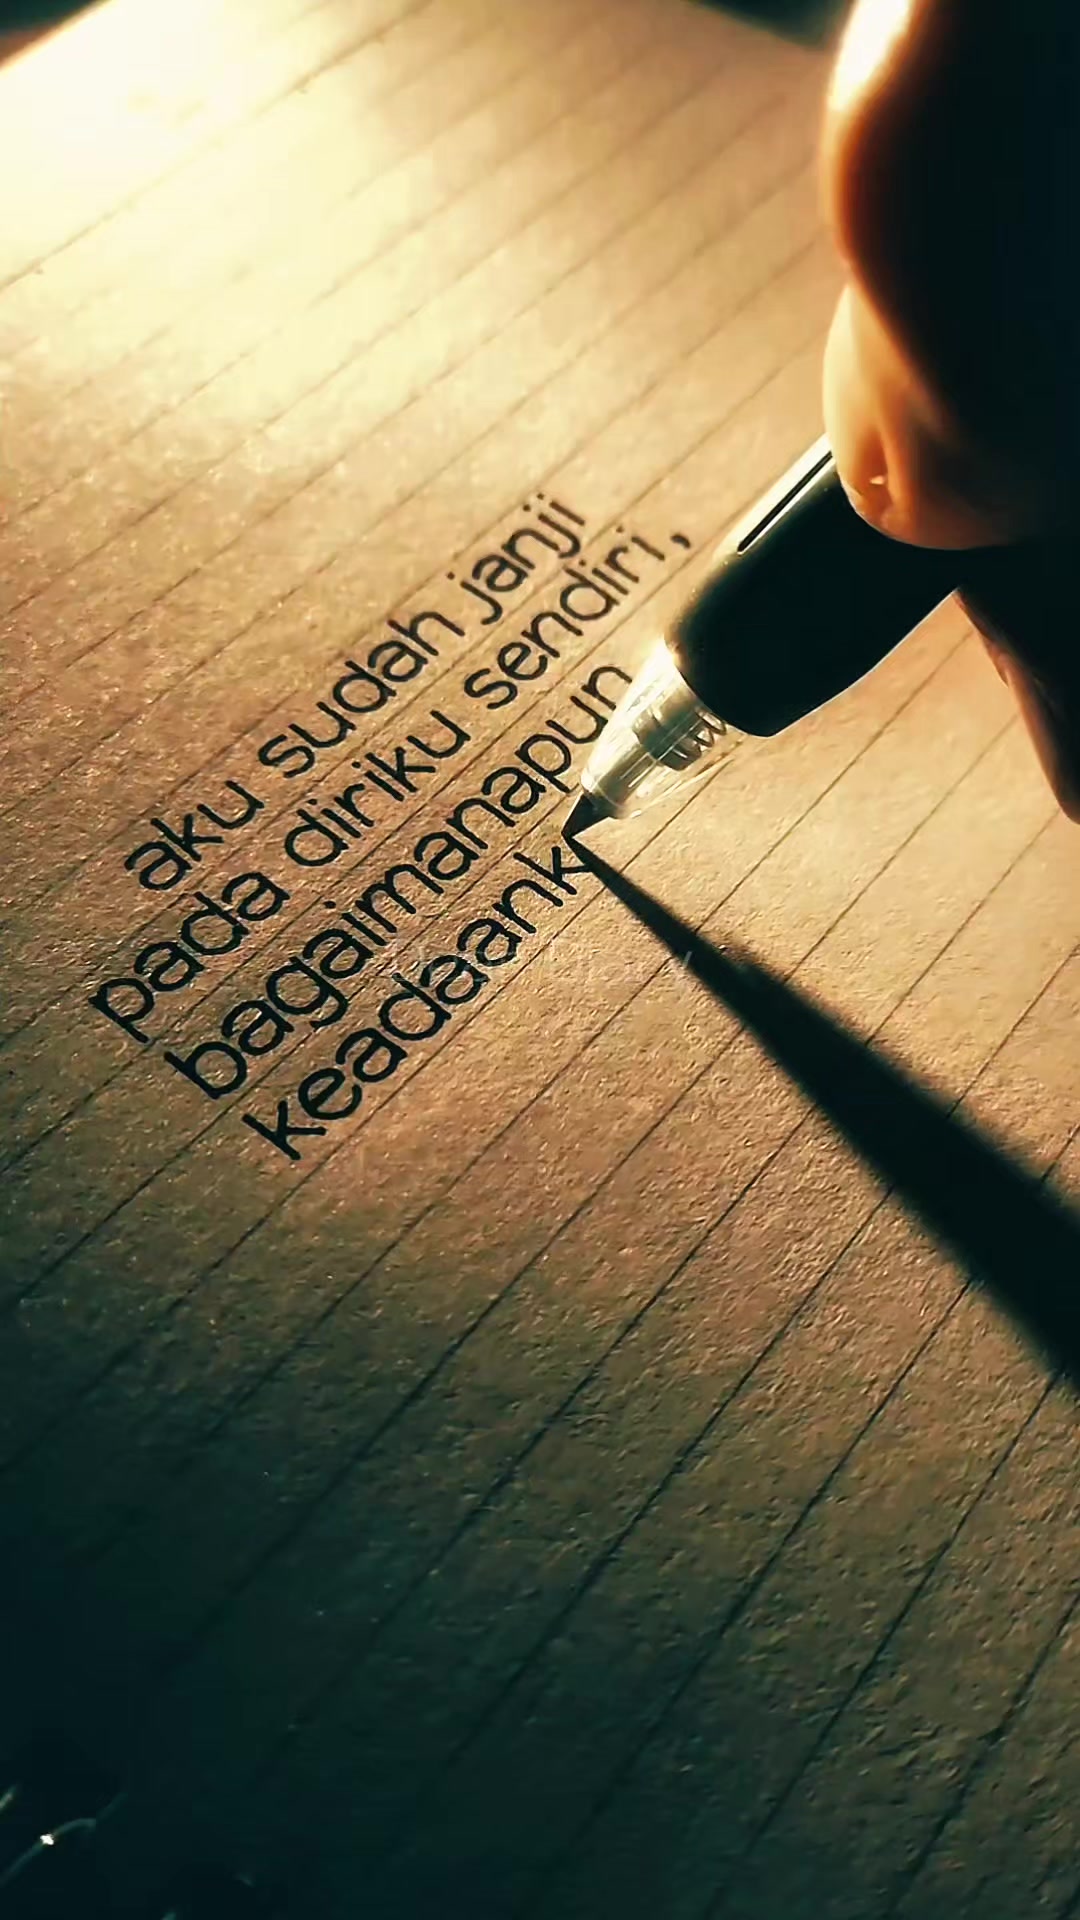 aku sudah janji
pada diriku sendiri,
bagaimanapun
keadaank